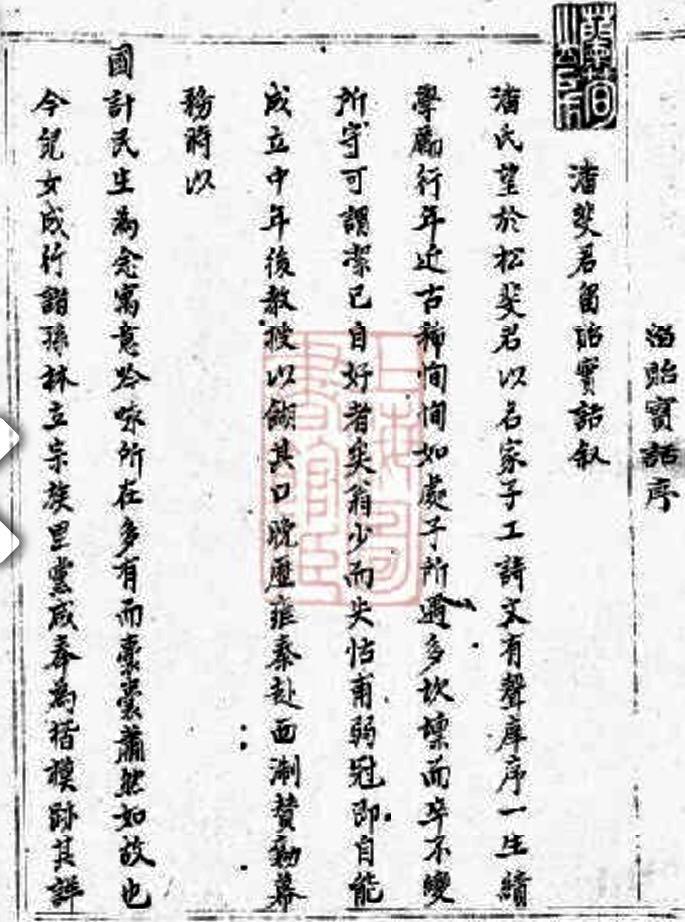 留貽寶話序
潘斐君留貽寶話叙
潘氏望於松斐君以名家子工詩文有聲庠序一生績
學勵行年近古稀恂恂如處子所遇多坎壈而卒不變
所守可謂潔己自好者矣翁少而失怙甫弱冠即自能
成立中年後教授以餬其口晚歷雍秦赴西淛贊勷幕
務時以
國計民生為念寓意吟咏所在多有而橐囊蕭然如故也
今兒女成行諸孫林立宗族里黨咸奉為楷模跡其詳
上海圖書館藏